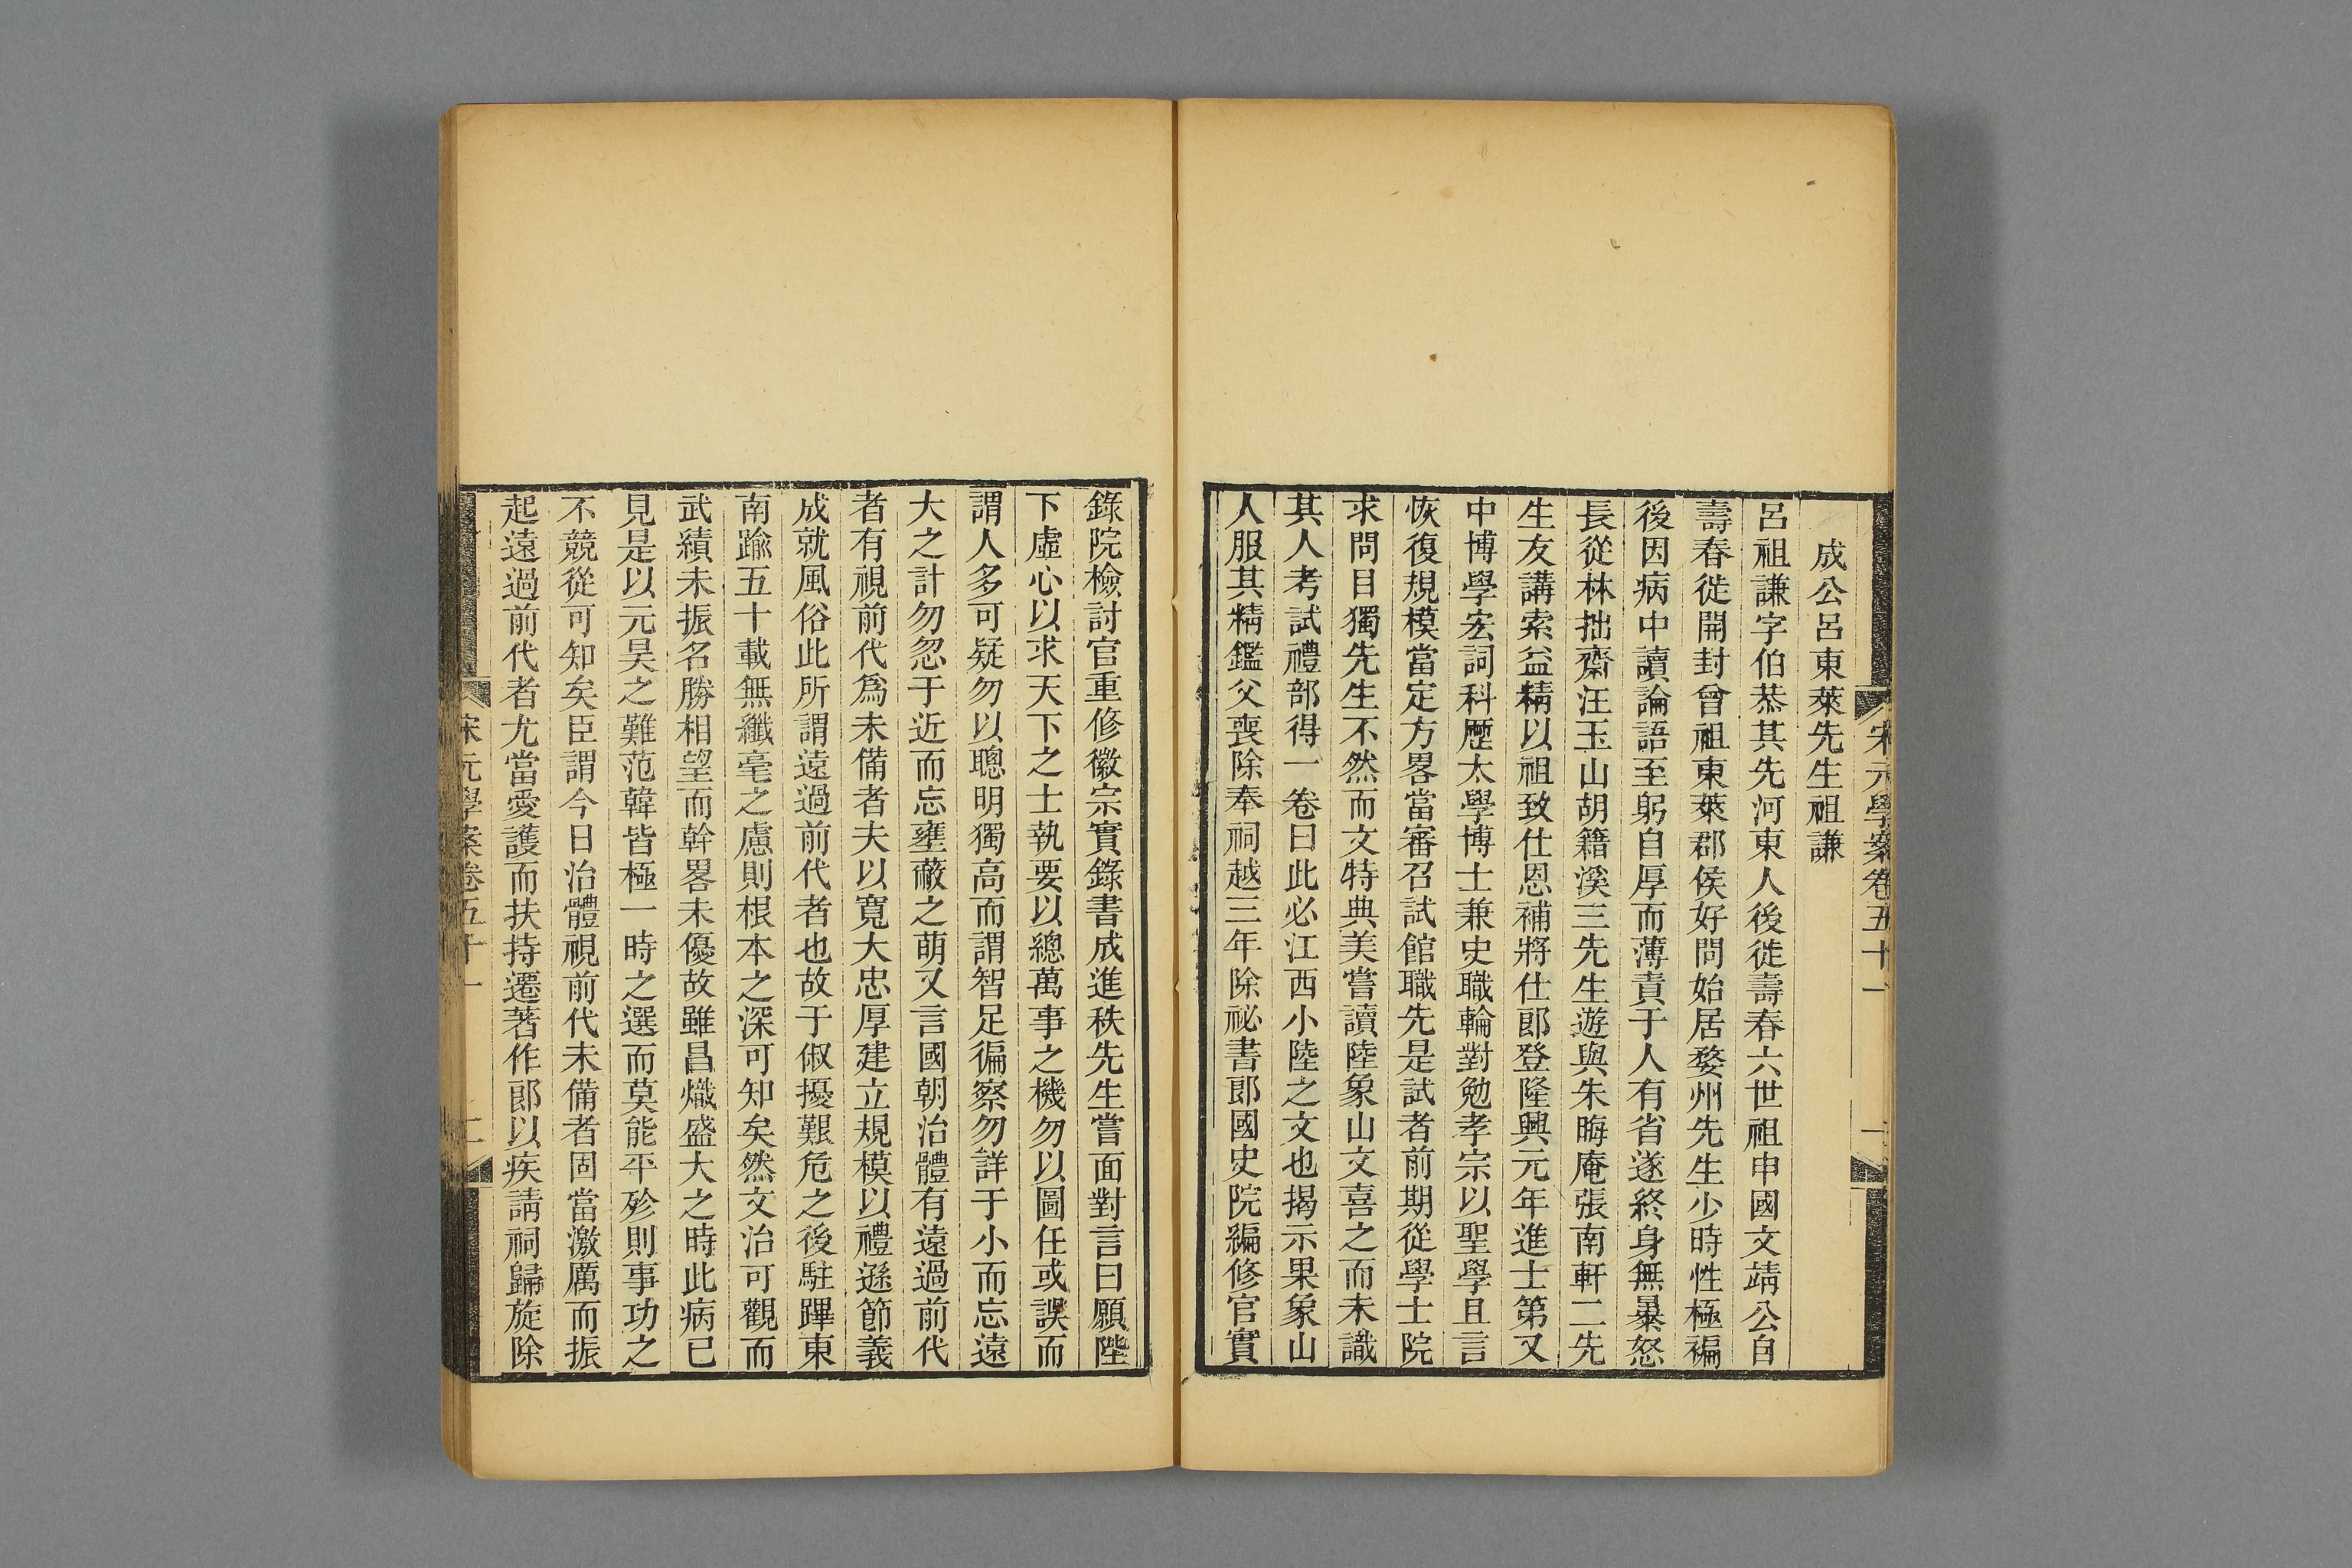 宋元學案卷五十一
一
成公呂東萊先生祖謙
呂祖謙字伯恭其先河東人後徙壽春六世祖申國文靖公自
壽春徙開封曾祖東萊郡侯好問始居婺州先生少時性極褊
後因病中讀論語至躬自厚而薄責于人有省遂終身無暴怒
長從林拙齋汪玉山胡籍溪三先生遊與朱晦庵張南軒二先
生友講索益精以祖致仕恩補將仕郎登隆興元年進士第又
中博學宏詞科歷太學博士兼史職輪對勉孝宗以聖學且言
恢復規模當定方畧當審召試館職先是試者前期從學士院
求問目獨先生不然而文特典美嘗讀陸象山文喜之而未識
其人考試禮部得一卷曰此必江西小陸之文也揭示果象山
人服其精鑑父喪除奉祠越三年除祕書郎國史院編修官實
錄院檢討官重修徽宗實錄書成進秩先生嘗面對言曰願陛
下虛心以求天下之士執要以總萬事之機勿以圖任或誤而
謂人多可疑勿以聰明獨高而謂智足徧察勿詳于小而忘遠
大之計勿忽于近而忘壅蔽之萌又言國朝治體有遠過前代
者有視前代爲未備者夫以寬大忠厚建立規模以禮遜節義
成就風俗此所謂遠過前代者也故于俶擾艱危之後駐蹕東
南踰五十載無纖毫之慮則根本之深可知矣然文治可觀而
武績未振名勝相望而幹畧未優故雖昌熾盛大之時此病已
見是以元昊之難范韓皆極一時之選而莫能平殄則事功之
不競從可知矣臣謂今日治體視前代未備者固當激厲而振
起遠過前代者尤當愛護而扶持遷著作郎以疾請祠歸旋除
宋元學案卷五十一
二